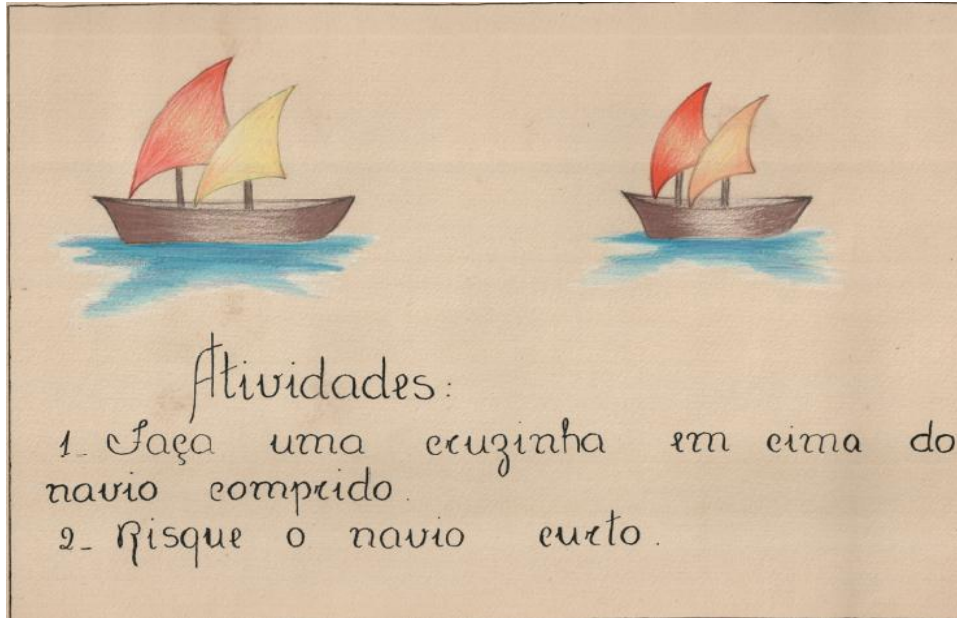 Atividades:
1- Faça uma cruzinha em cima do
navio comprido.
2- Risque o navio curto.